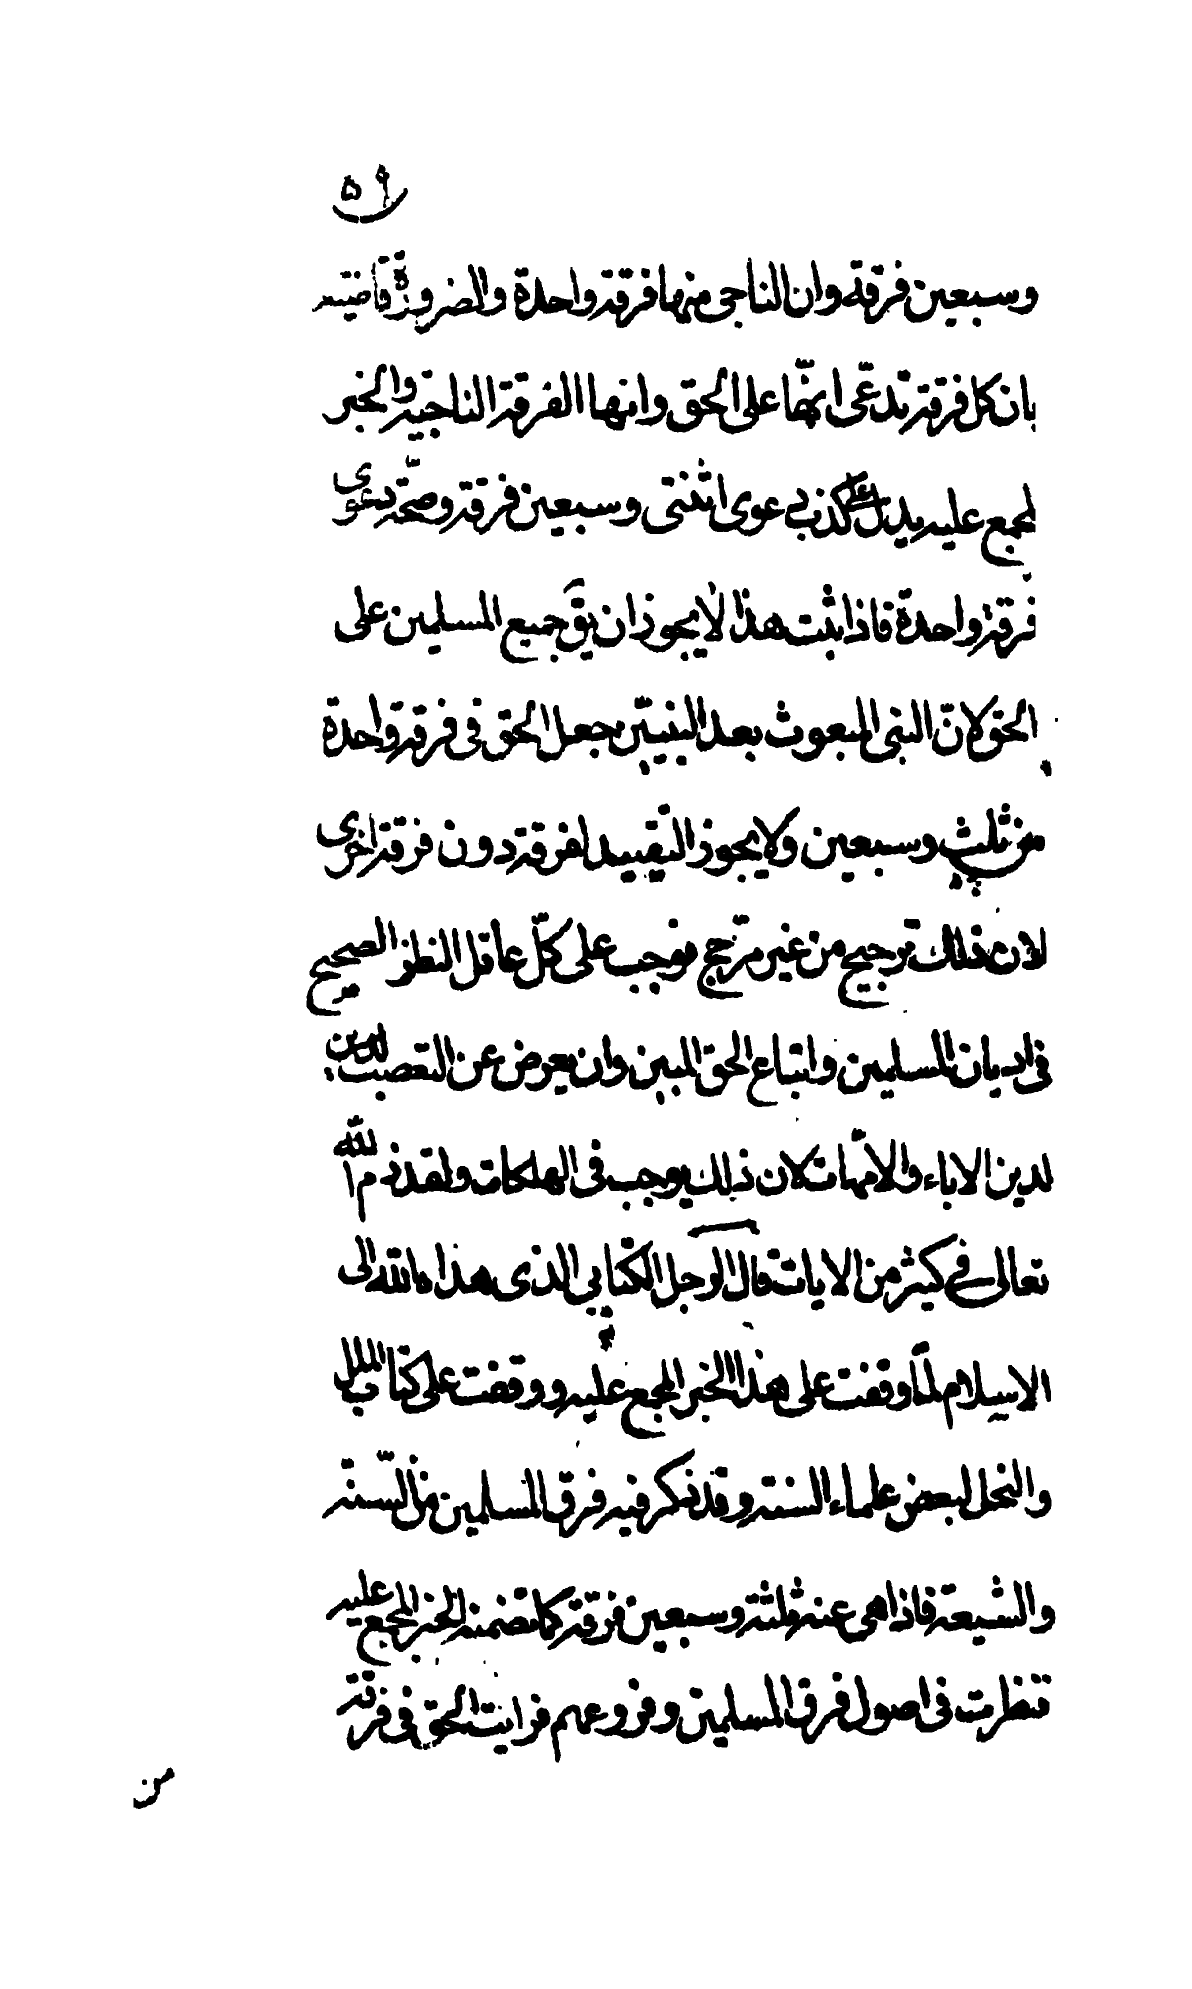 ٥٩
وسبعين فرقة وان الناجى منهما فرقة واحدة والضرورة قاضيته
بان كل فرقة تدعّى انهّا على الحق وانها الفرقة الناجية والخبر
المجمع عليه يدل على كذب دعوى اثنتى وسبعين فرقة وصحّة دعوى
فرقة واحدة فاذا ثبت هذا لا يجوز ان يق جميع المسلمين على
الحق لانّ النبى المبعوث بعد النبيّين جعل الحق فى فرقة واحدة
من ثلث وسبعين ولا يجوز التقييد لفرقة دون فرقة اخرى
لان ذلك ترجيح من غير مرّجح فوجب على كلّ عاقل النظر الصحيح
فى اديان المسلمين واتباع الحق المبين وان يعرض عن التعصب
لدين الاباء والامّهات لان ذلك يوجب فى الهلكات ولقد ذم الله
تعالى فى كثير من الايات قال الرجل الكتابي الذى هداه الله الى
الاسلام لمّا وقفت على هذا الخبر المجمع عليه ووقفت على كتاب الملل
والنحل لبعض علماء السنة وقد ذكر فيه فرق المسلمين من السّنة
والشيعة فاذا هى عنه ثلثة وسبعين فرقة كما تضمنه الخبر المجمع عليه
فنظرت فى اصول فرق المسلمين وفروعهم فرايت الحق فى فرقة
من